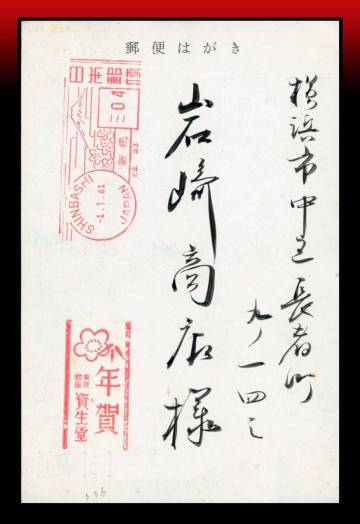 郵便はがき
横浜市中区長者町
九ノ一四二
岩崎商店様
日本郵便
04
新橋
SHINBASHI
-1.1.61
JAPAN
年賀
東京
銀座
資生堂
336